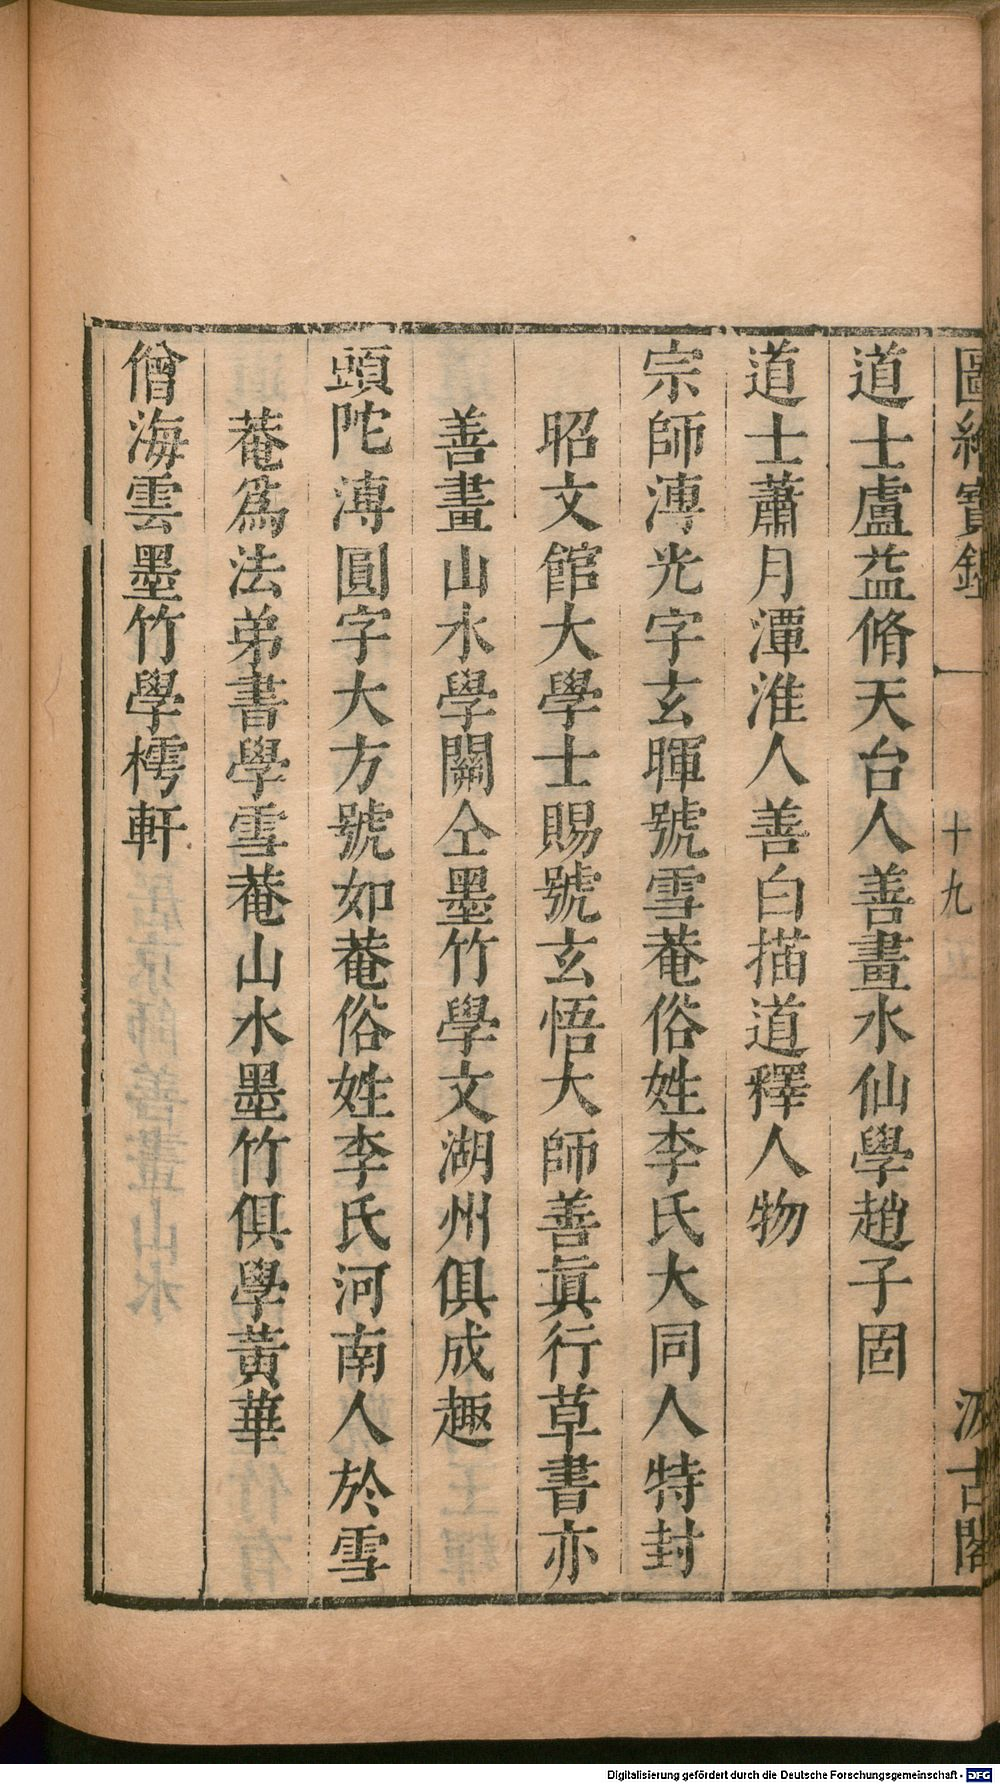 圖繪寶鑑
十九
汲古閣
道士盧益脩天台人善畫水仙學趙子固
道士蕭月潭淮人善白描道釋人物
宗師溥光字玄暉號雪菴俗姓李氏大同人特封
昭文館大學士賜號玄悟大師善眞行草書亦
善畫山水學關仝墨竹學文湖州俱成趣
頭陀溥圓字大方號如菴俗姓李氏河南人於雪
菴爲法弟書學雪菴山水墨竹俱學黃華
僧海雲墨竹學樗軒
Digitalisierung gefördert durch die Deutsche Forschungsgemeinschaft - DFG